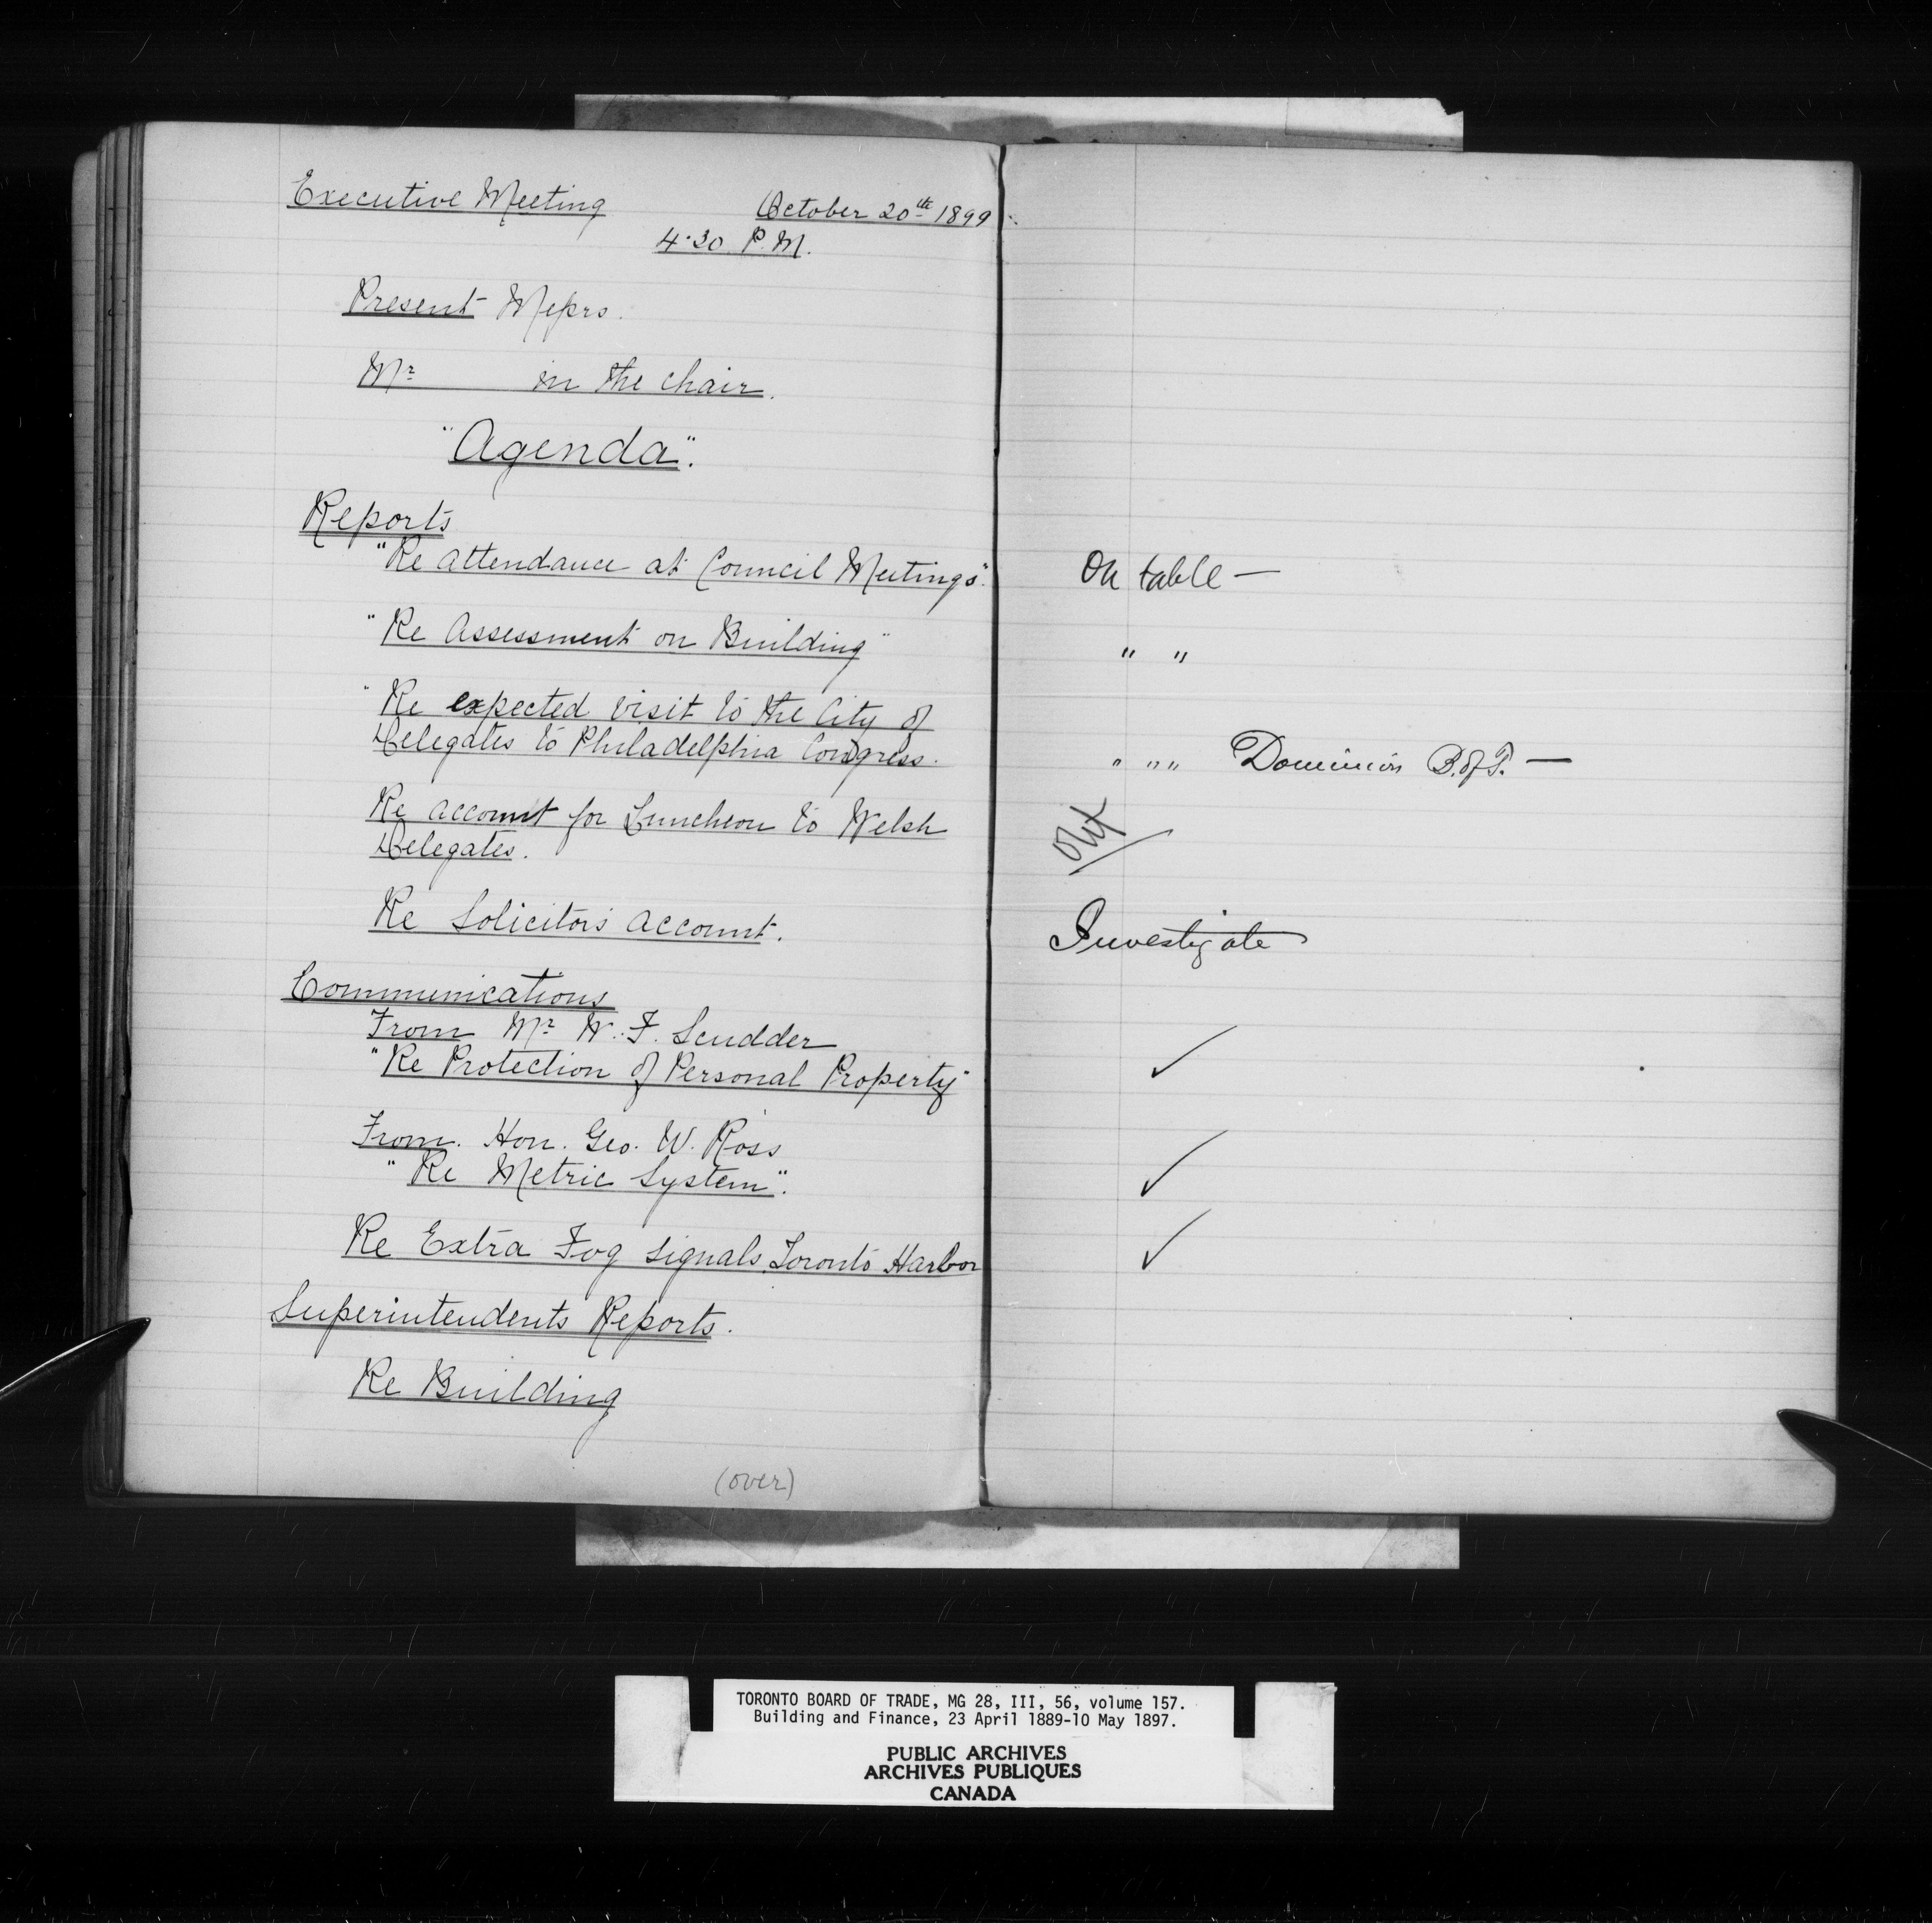 Executive Meeting October 20th 1899
4.30 P.M.
Present Messrs.
Mr in the chair.
"Agenda".
Reports
"Re attendance at Council Meetings".
"Re Assessment on Building"
"Re expected visit to the City of
Delegates to Philadelphia Congress.
Re account for Luncheon to Welsh
Delegates.
Re Solicitors account.
Communications
From Mr W. F. Scudder
"Re Protection of Personal Property"
From. Hon. Geo. W. Ross
"Re Metric System".
Re Extra Fog Signals Toronto Harbor
Superintendents Reports.
Re Building
(over)
On table —
" "
" " " Dominion B. of T. —
Investigate
✓
✓
✓
TORONTO BOARD OF TRADE, MG 28, III, 56, volume 157.
Building and Finance, 23 April 1889-10 May 1897.
PUBLIC ARCHIVES
ARCHIVES PUBLIQUES
CANADA